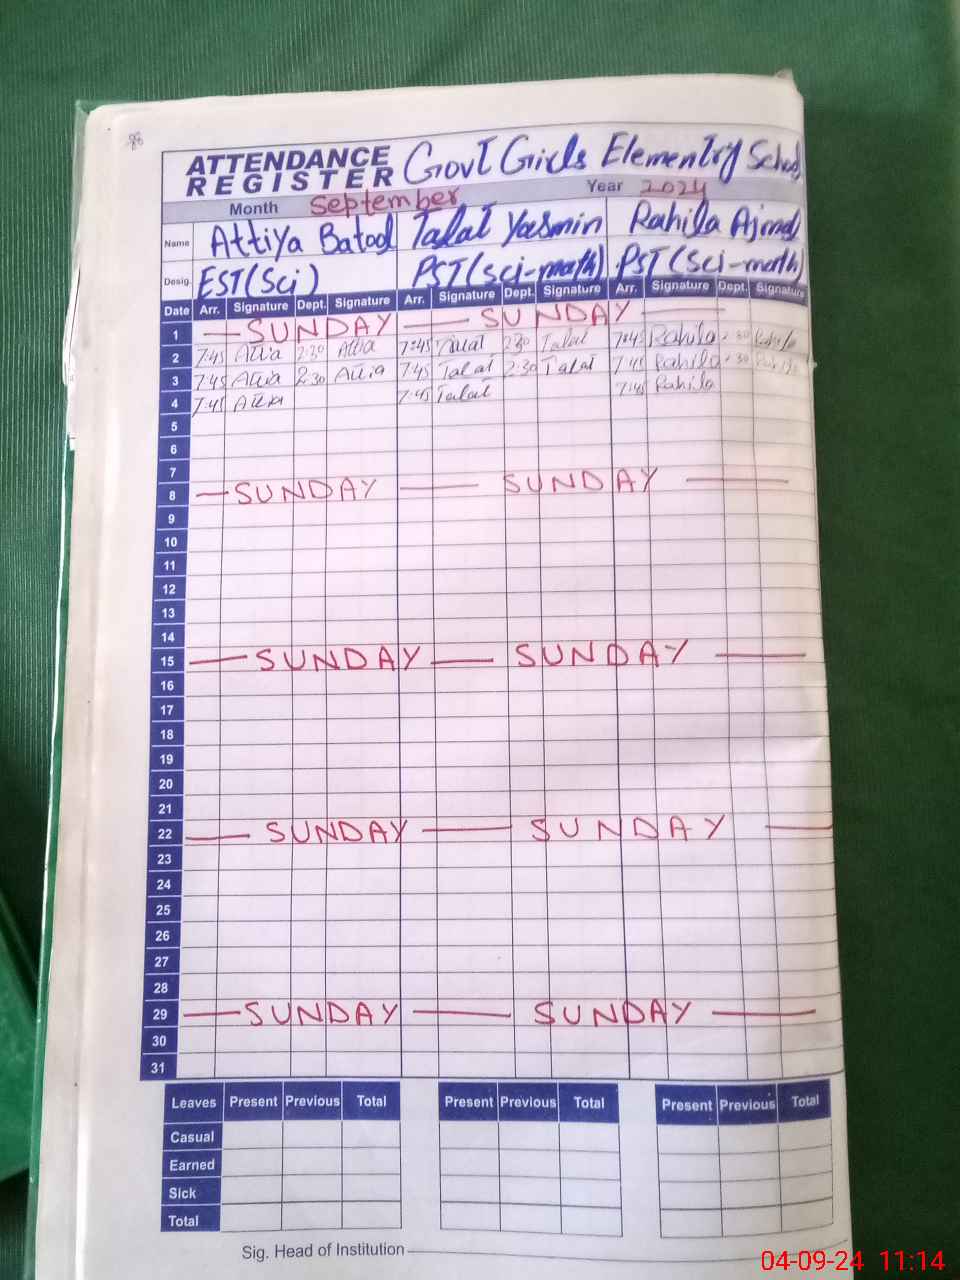 ATTENDANCE REGISTER Govt Girls Elementry School
Month September Year 2024
Name Attiya Batool Talat Yasmin Rahila Ajmal
Desig. EST(Sci) PST(Sci-math) PST(Sci-math)
Date Arr. Signature Dept. Signature Arr. Signature Dept. Signature Arr. Signature Dept. Signature
1 SUNDAY SUNDAY
2 7:45 Attia 2:30 Attia 7:45 Talat 2:30 Talat 7:45 Rahila 2:30 Rahila
3 7:45 Attia 2:30 Attia 7:45 Talat 2:30 Talat 7:45 Rahila 2:30 Rahila
4 7:45 Attia 7:45 Talat 7:45 Rahila
5
6
7
8 SUNDAY SUNDAY
9
10
11
12
13
14
15 SUNDAY SUNDAY
16
17
18
19
20
21
22 SUNDAY SUNDAY
23
24
25
26
27
28
29 SUNDAY SUNDAY
30
31
Leaves Present Previous Total Present Previous Total Present Previous Total
Casual
Earned
Sick
Total
Sig. Head of Institution
04-09-24 11:14